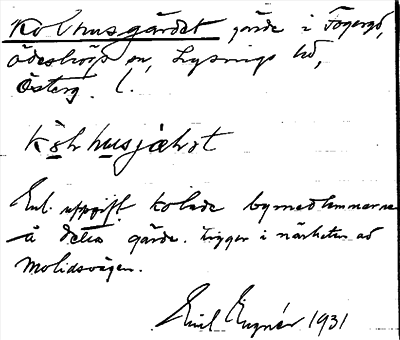 Kolhusgärdet gärde i Fogergö,
Ödeshögs sn, Lysings hd,
Österg. l.
Kòlhusjæḷot
Enl. uppgift kolade bymedlemmarne
å detta gärde. Ligger i närheten av
Molidsvägen.
Emil Engnér 1931